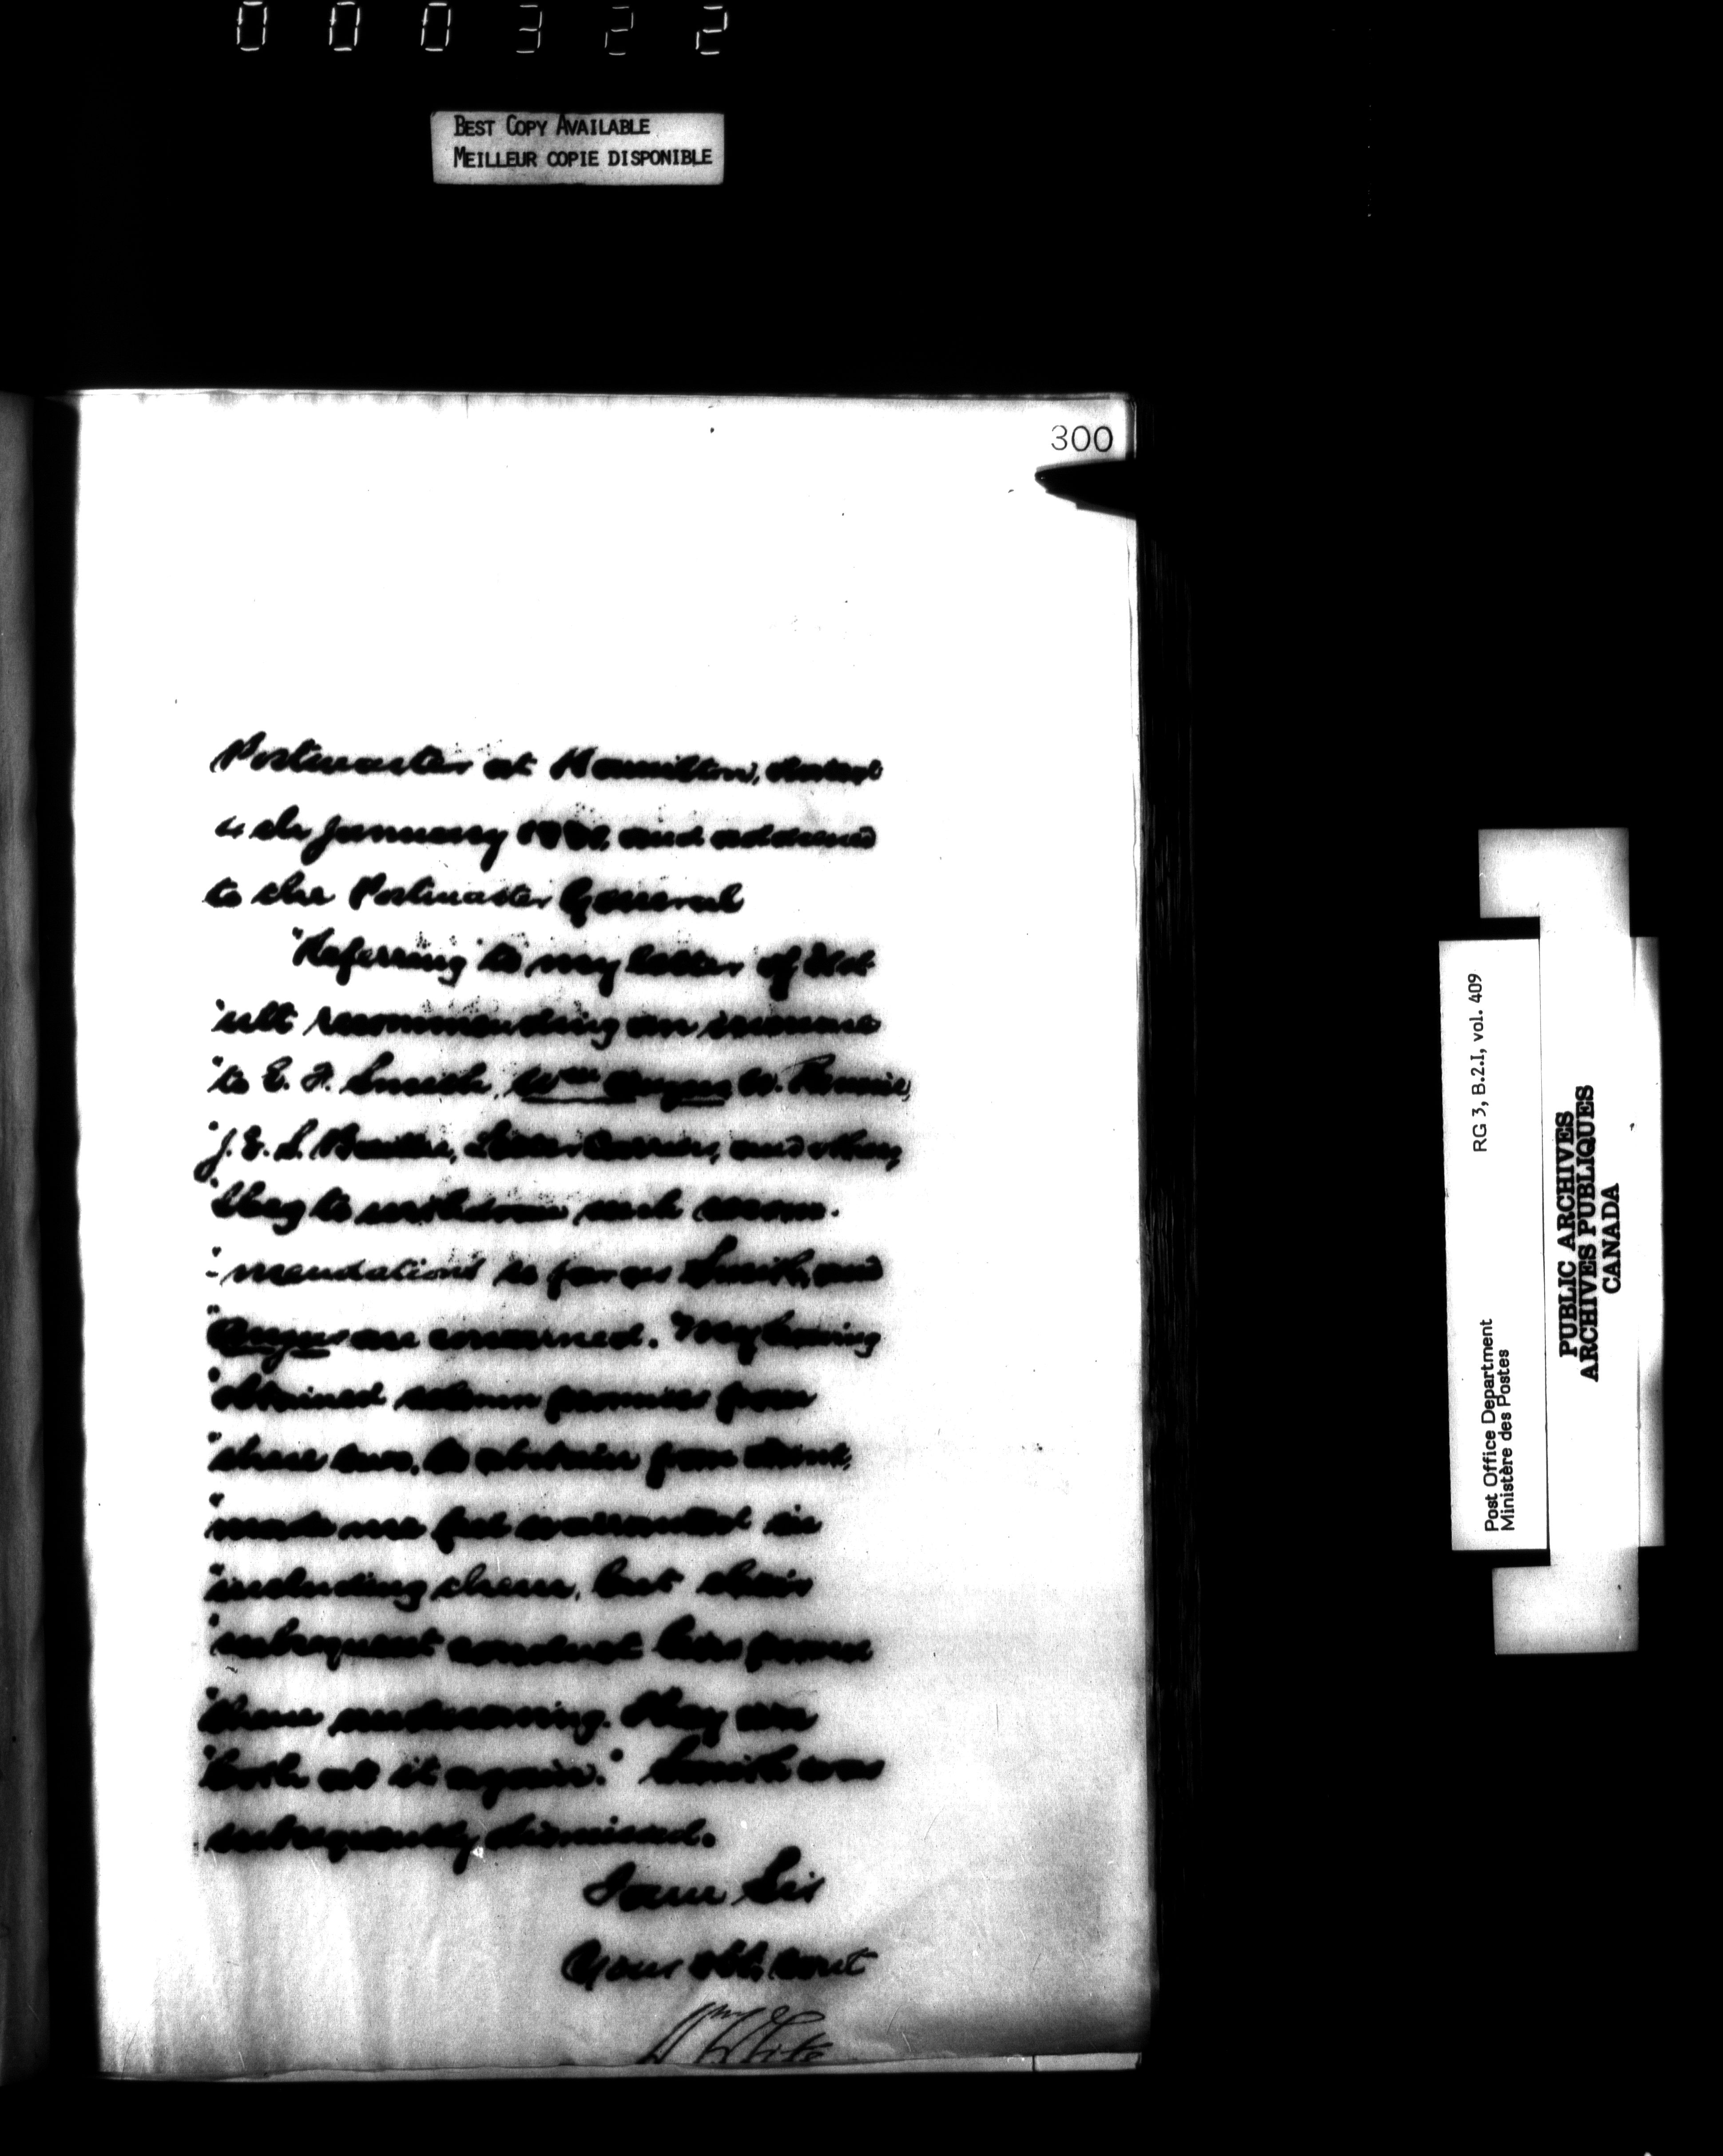 000322
BEST COPY AVAILABLE
MEILLEUR COPIE DISPONIBLE
300
Postmaster at Hamilton, dated
4th January and addressed
to the Postmaster General
"Referring to my letter of
"ult recommending an increase
"to E. F. Smith, Wm Angus W. Rennie,
"J. E. S. Letter Carriers, and others,
"I beg to withdraw such recom-
"-mendations so far as Smith, and
"Angus are concerned. My having
"obtained solemn promises from
"these two, to abstain from drink,
"made me feel warranted in
"including them, but their
"subsequent conduct has proved
"them undeserving. They are
"both at it again." Smith was
subsequently dismissed.
I am Sir
Your obt. servt
Wm White
RG 3, B.2.I, vol. 409
Post Office Department
Ministère des Postes
PUBLIC ARCHIVES
ARCHIVES PUBLIQUES
CANADA